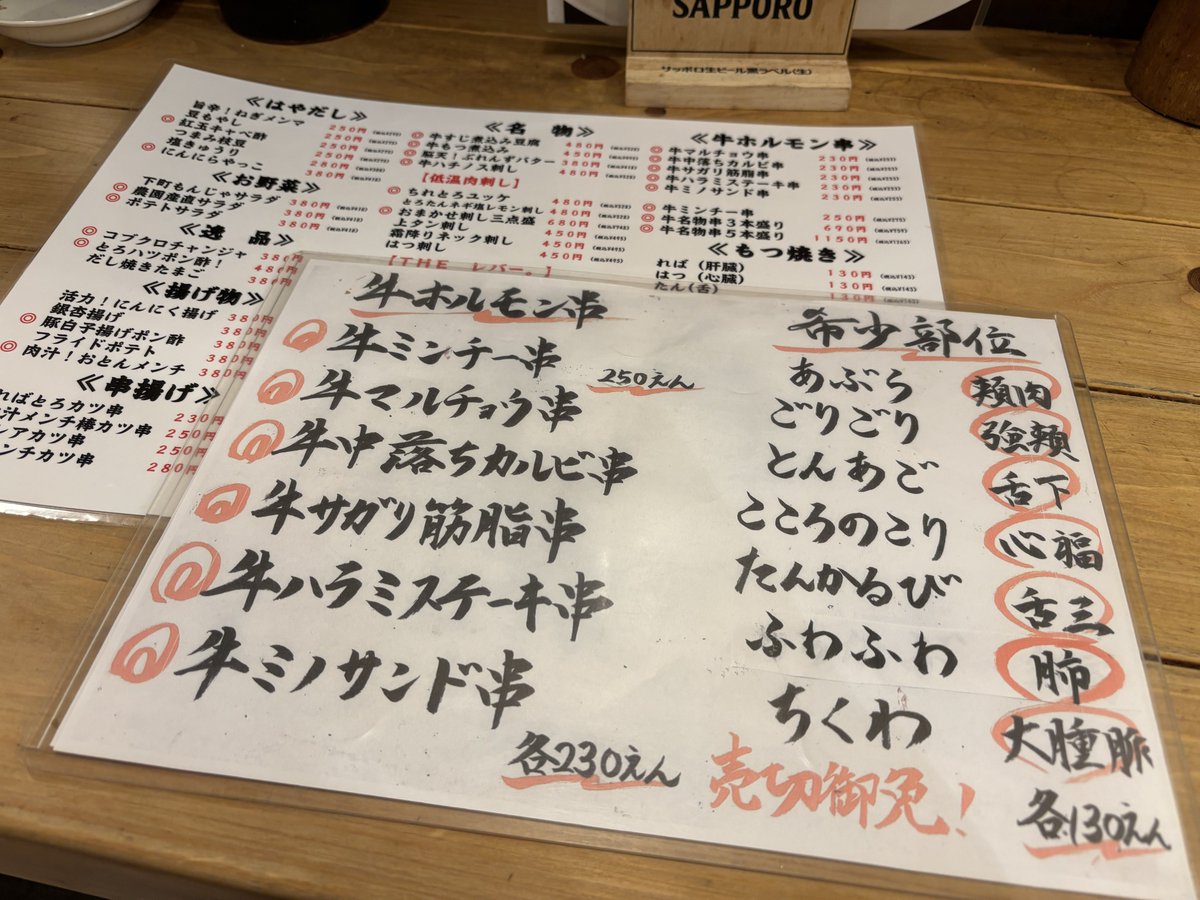 SAPPORO
サッポロ生ビール黒ラベル(生)
≪はやだし≫
旨辛!ねぎメンマ 250円
◎ 豆もやし 250円
紅玉キャベ酢 250円
つまみ枝豆 250円
塩きゅうり 280円
◎ にんにらやっこ 380円
≪お野菜≫
◎ 下町もんじゃサラダ 380円
◎ 農園産直サラダ 380円
◎ ポテトサラダ 380円
≪逸品≫
◎ コブクロチャンジャ 380円
◎ とろハツポン酢! 480円
だし焼きたまご 380円
≪揚げ物≫
活力!にんにく揚げ
銀杏揚げ 380円
◎ 豚白子揚げポン酢 380円
フライドポテト 380円
◎ 肉汁!おとんメンチ 380円
≪串揚げ≫
ればとろカツ串 230円
汁メンチ棒カツ串 250円
レアカツ串 250円
ンチカツ串 280円
≪名物≫
◎ 牛すじ煮込み豆腐 480円
◎ 牛もつ煮込み 450円
◎ 脳天!ぷれんずバター 380円
◎ 牛ハチノス刺し 480円
【低温肉刺し】
◎ ちれとろユッケ 480円
◎ とろたんネギ塩レモン刺し 480円
◎ おまかせ刺し三点盛 680円
上シンン刺し 450円
霜降りネック刺し 450円
はつ刺し 450円
【THE レバー。】
≪牛ホルモン串≫
◎ 牛マルチョウ串 230円
◎ 牛中落ちカルビ串 230円
◎ 牛サガリ筋脂串 230円
◎ 牛ハラミステーキ串 230円
◎ 牛ミノサンド串 230円
◎ 牛ミンチー串 250円
◎ 牛名物串3本盛り 670円
◎ 牛名物串5本盛り 1150円
≪もつ焼き≫
れば(肝臓) 130円
はつ(心臓) 130円
たん(舌) 130円
牛ホルモン串
牛ミンチー串 250えん
牛マルチョウ串
牛中落ちカルビ串
牛サガリ筋脂串
牛ハラミステーキ串
牛ミノサンド串
各230えん
希少部位
あぶら 頬肉
ごりごり 強頬
とんあご 舌下
こころのこり 心福
たんかるび 舌三
ふわふわ 肺
ちくわ 大腫脈
売切御免!
各130えん